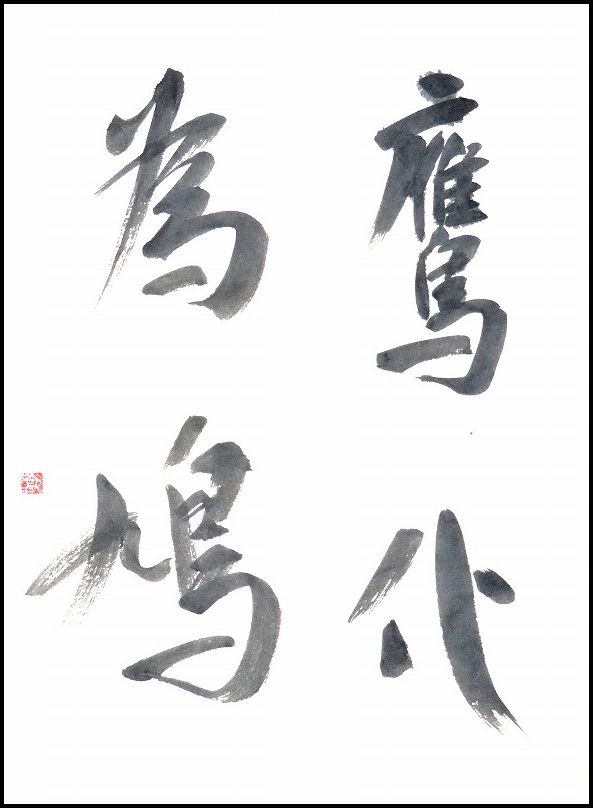 鷹化
為鳩